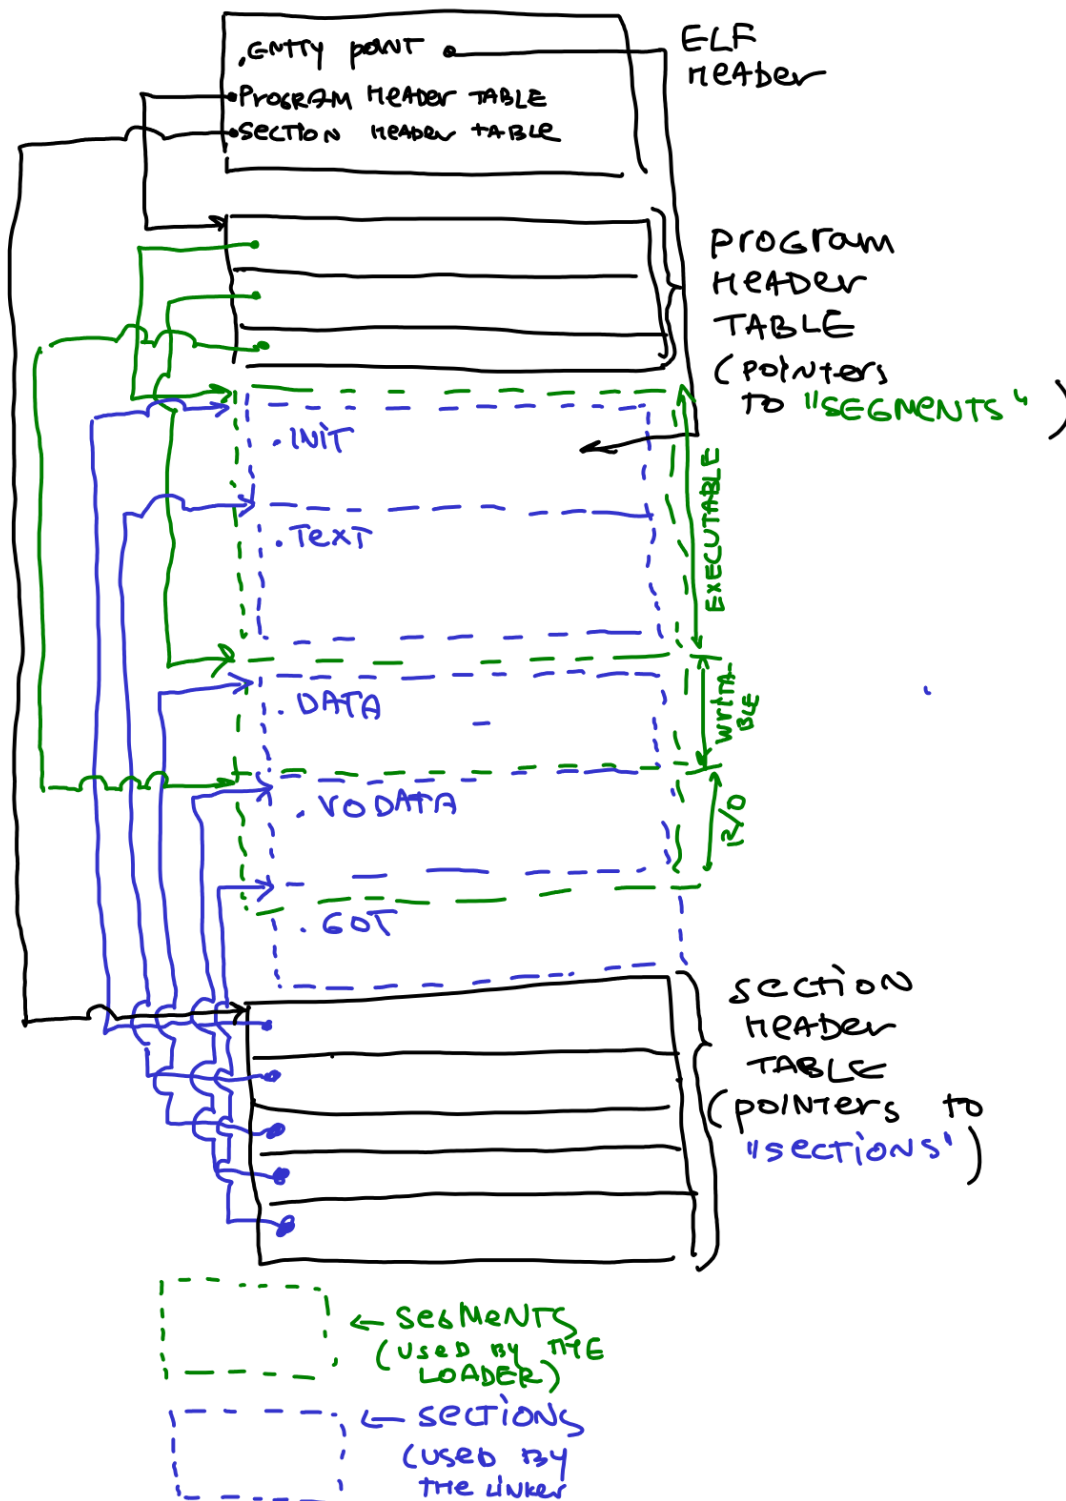 . ENTRY POINT
PROGRAM HEADER TABLE
SECTION HEADER TABLE
ELF
HEADER
PROGRAM
HEADER
TABLE
(POINTERS
TO "SEGMENTS")
.INIT
.TEXT
EXECUTABLE
.DATA
WRITA-
BLE
.RODATA
R/O
.GOT
SECTION
HEADER
TABLE
(POINTERS TO
"SECTIONS")
← SEGMENTS
(USED BY THE
LOADER)
← SECTIONS
(USED BY
THE LINKER